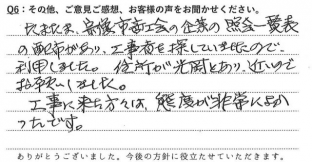 Q6：その他、ご意見ご感想、お客様の声をお聞かせください。
たまたま、鳥栖市商工会の企業の照会一覧表
の配布があり、工事者を探していましたので、
利用しました。住所が光岡とあり、近いので
お願いしました。
工事に来た方々は、態度が非常によか
ったです。
ありがとうございました。今後の方針に役立たせていただきます。